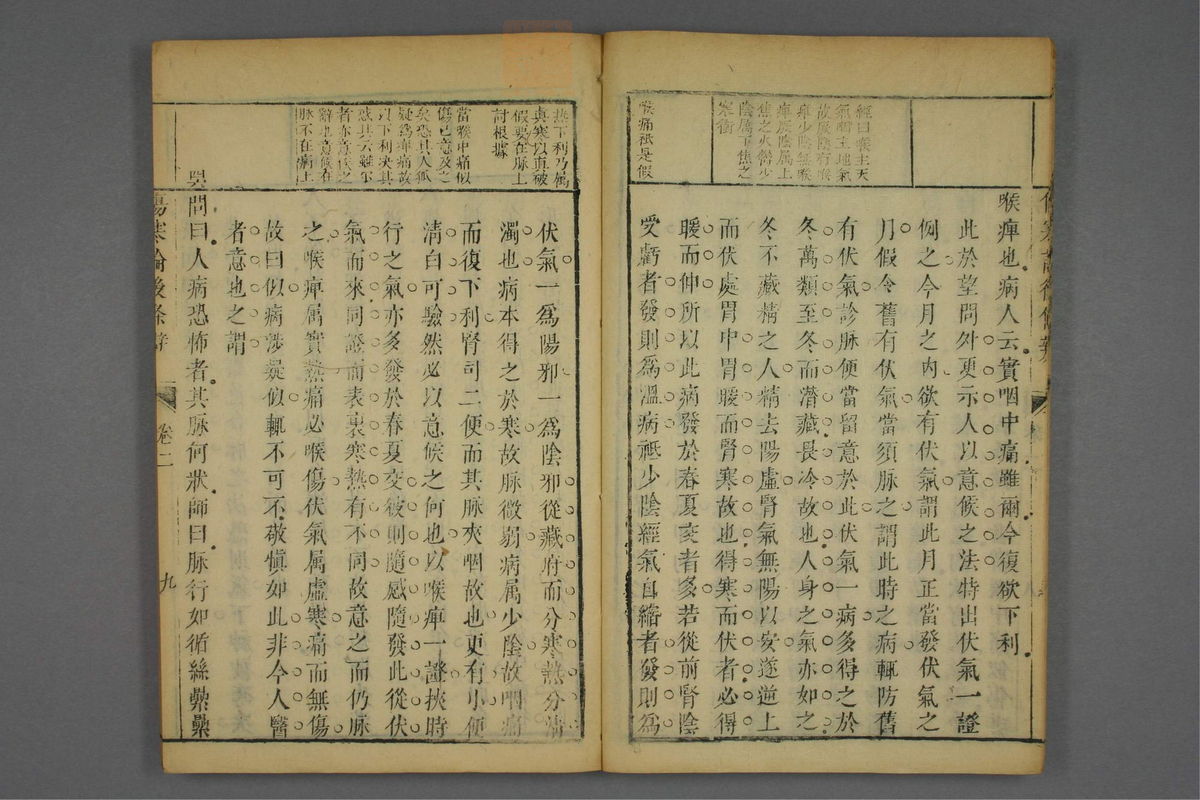 經曰喉主天
氣咽主地氣
故屬陰有喉
痺少陰無喉
痺痺屬上
焦之火欝少
陰屬下焦之
寒衝
喉痛祇是假
喉痺也病人云實咽中痛雖爾今復欲下利
此於望問外更示人以意候之法特出伏氣一證
例之今月之內欲有伏氣謂此月正當發伏氣之
月假令舊有伏氣當須脉之謂此時之病輒防舊
有伏氣診脉便當留意於此伏氣一病多得之於
冬萬類至冬而潛藏畏冷故也人身之氣亦如之
冬不藏精之人精去陽虛腎氣無陽以安遂逆上
而伏處胃中胃暖而腎寒故也得寒而伏者必得
暖而伸所以此病發於春夏交者多若從前腎陰
受虧者發則爲溫病祇少陰經氣自縮者發則爲
熱下利乃屬
真寒以真破
假要在脉上
討根據
當喉中痛似
傷已意及之
矣恐其人狐
疑爲痺痛故
以下利決其
惑其云雖爾
者亦意候之
辭也意候在
脉不在病上
伏氣一爲陽邪一爲陰邪從藏府而分寒熱分清
濁也病本得之於寒故脉微弱病属少陰故咽痛
而復下利腎司二便而其脉夾咽故也更有小便
清白可驗然必以意候之何也以喉痺一證挾時
行之氣亦多發於春夏交彼則隨感隨發此從伏
氣而來同證而表裏寒熱有不同故意之而仍脉
之喉痺属實熱痛必喉傷伏氣属虛寒痛而無傷
故曰似病涉疑似輒不可不敬愼如此非今人醫
者意也之謂
問曰人病恐怖者其脉何狀師曰脉行如循絲纍纍
傷寒論後條辨
卷二
九